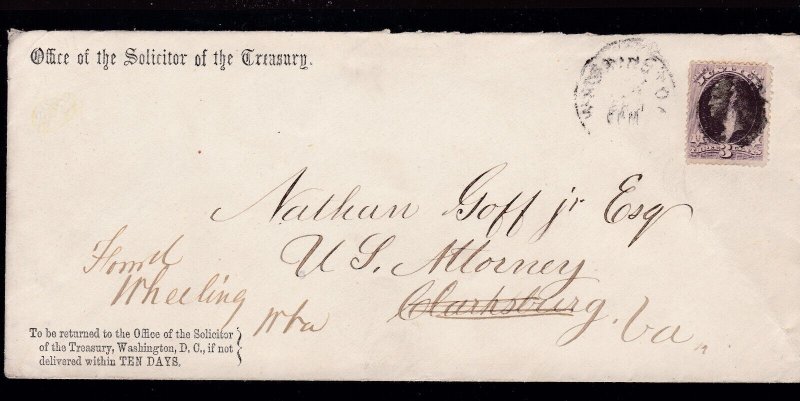 Office of the Solicitor of the Treasury.
3
Nathan Goff jr Esq
U S. Attorney
Clarksburg. Va
Forwd
Wheeling
W Va
To be returned to the Office of the Solicitor
of the Treasury, Washington, D. C., if not
delivered within TEN DAYS.